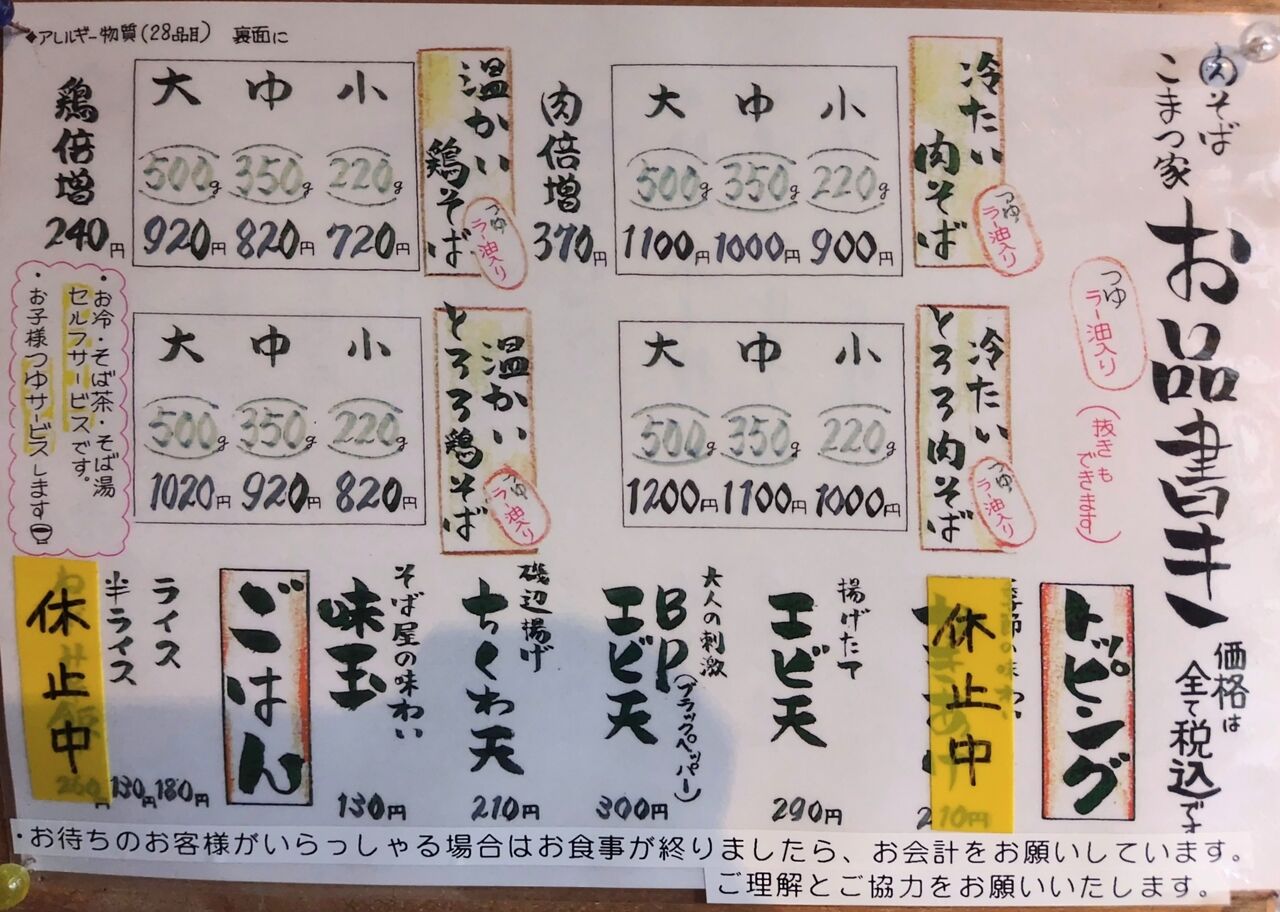 肉そば
こまつ家
お品書き
価格は
全て税込です
つゆ
ラー油入り
(抜きも
できます)
冷たい
肉そば
つゆ
ラー油入り
小 中 大
220g 350g 500g
900円 1000円 1100円
肉倍増
370円
温かい
鶏そば
つゆ
ラー油入り
小 中 大
220g 350g 500g
720円 820円 920円
鶏倍増
240円
◆アレルギー物質(28品目) 裏面に
冷たい
とろろ肉そば
つゆ
ラー油入り
小 中 大
220g 350g 500g
1000円 1100円 1200円
温かい
とろろ鶏そば
つゆ
ラー油入り
小 中 大
220g 350g 500g
820円 920円 1020円
・お冷・そば茶・そば湯
セルフサービスです。
・お子様つゆサービスします
トッピング
休止中
揚げたて
エビ天
290円
大人の刺激
BP(ブラックペッパー)
エビ天
300円
磯辺揚げ
ちくわ天
210円
そば屋の味わい
味玉
130円
ごはん
ライス
180円
半ライス
130円
休止中
・お待ちのお客様がいらっしゃる場合はお食事が終りましたら、お会計をお願いしています。
ご理解とご協力をお願いいたします。